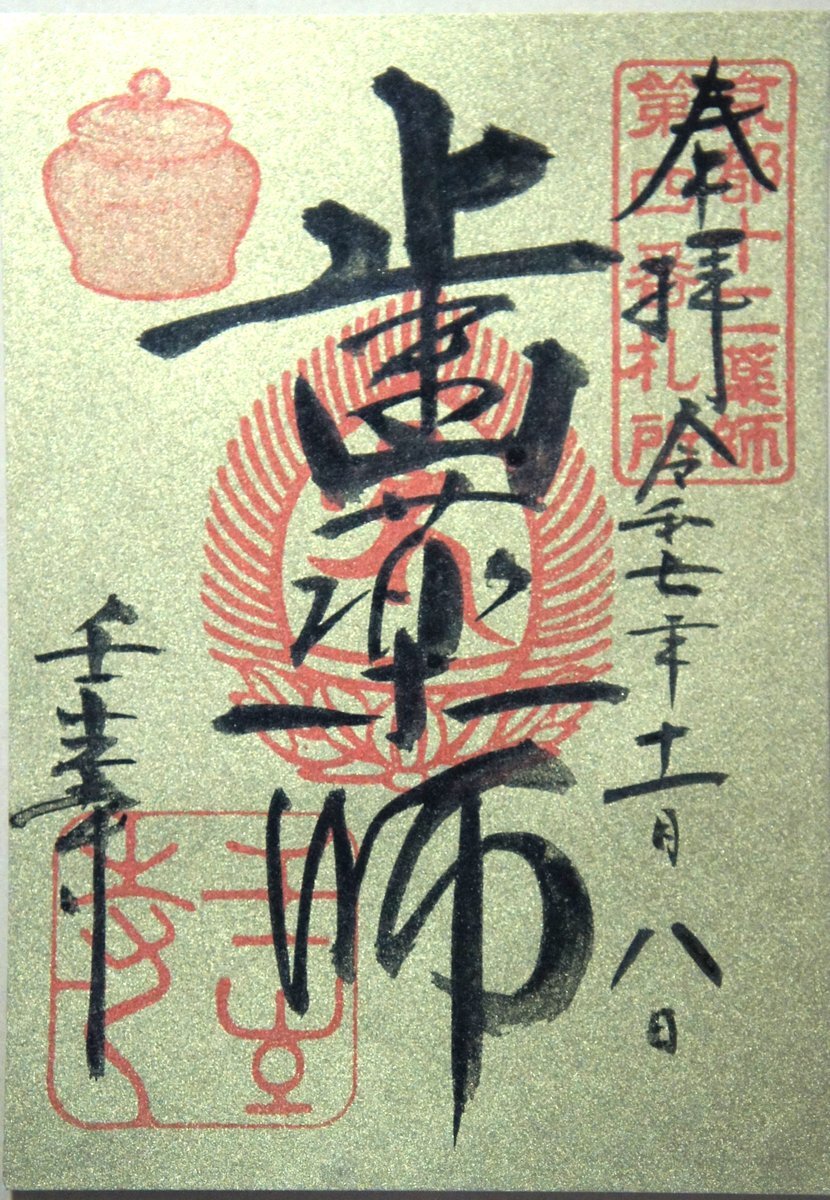 京都十二薬師
第四番札所
奉拝 令和七年十一月八日
歯薬師
壬生寺